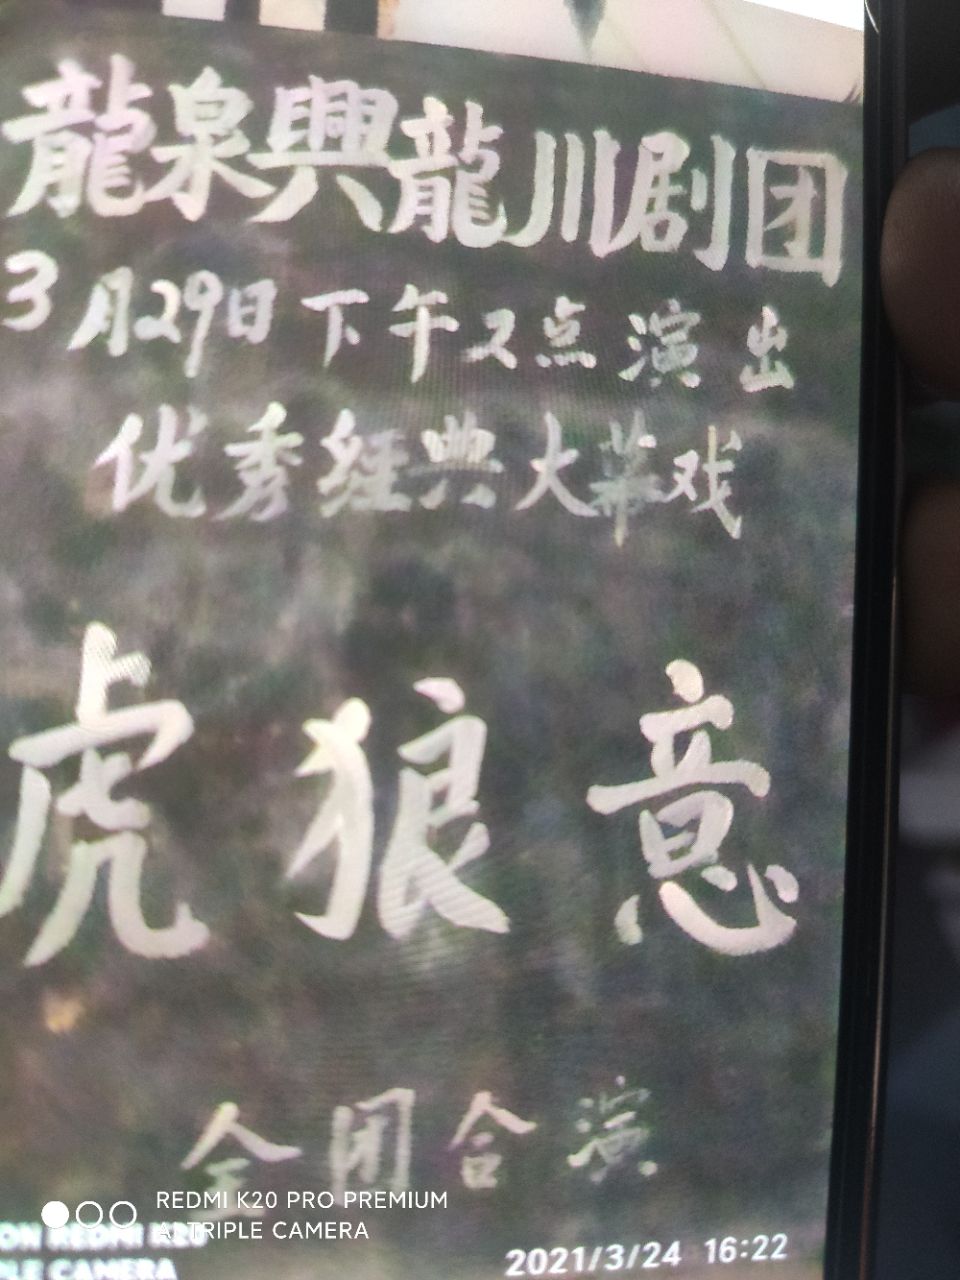 龍泉興龍川剧团
3月29日下午2点演出
优秀經典大幕戏
虎狼意
全团合演
REDMI K20 PRO PREMIUM
AI TRIPLE CAMERA
ON REDMI K20
PLE CAMERA
2021/3/24 16:22